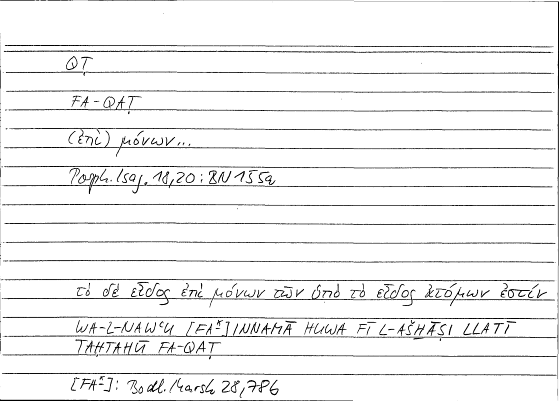 QṬ
FA-QAṬ
(ἐπὶ) μόνων...
Porph. Isag. 18,20: BN 155a
τὸ δὲ εἶδος ἐπὶ μόνων τῶν ὑπὸ τὸ εἶδος ἀτόμων ἐστίν
WA-L-NAWʿU [FAˣ]INNAMĀ HUWA FĪ L-AŠḪĀṢI LLATĪ
TAḤTAHŪ FA-QAṬ
[FAˣ]: Bodl. Marsh 28,78b